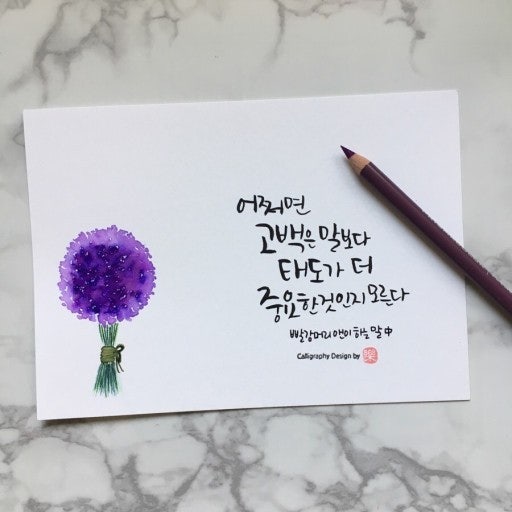 어쩌면
고백은 말보다
태도가 더
중요한것인지 모른다
빨강머리앤이 하는 말 中
Calligraphy Design by